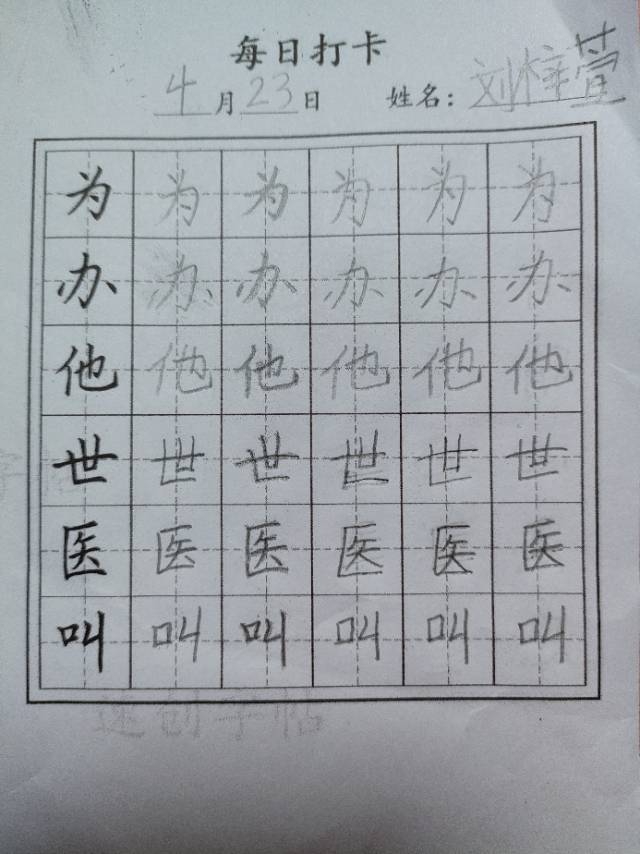 每日打卡
4月23日 姓名：刘梓萱
为为为为为为
办办办办办办
他他他他他他
世世世世世世
医医医医医医
叫叫叫叫叫叫
速创字帖